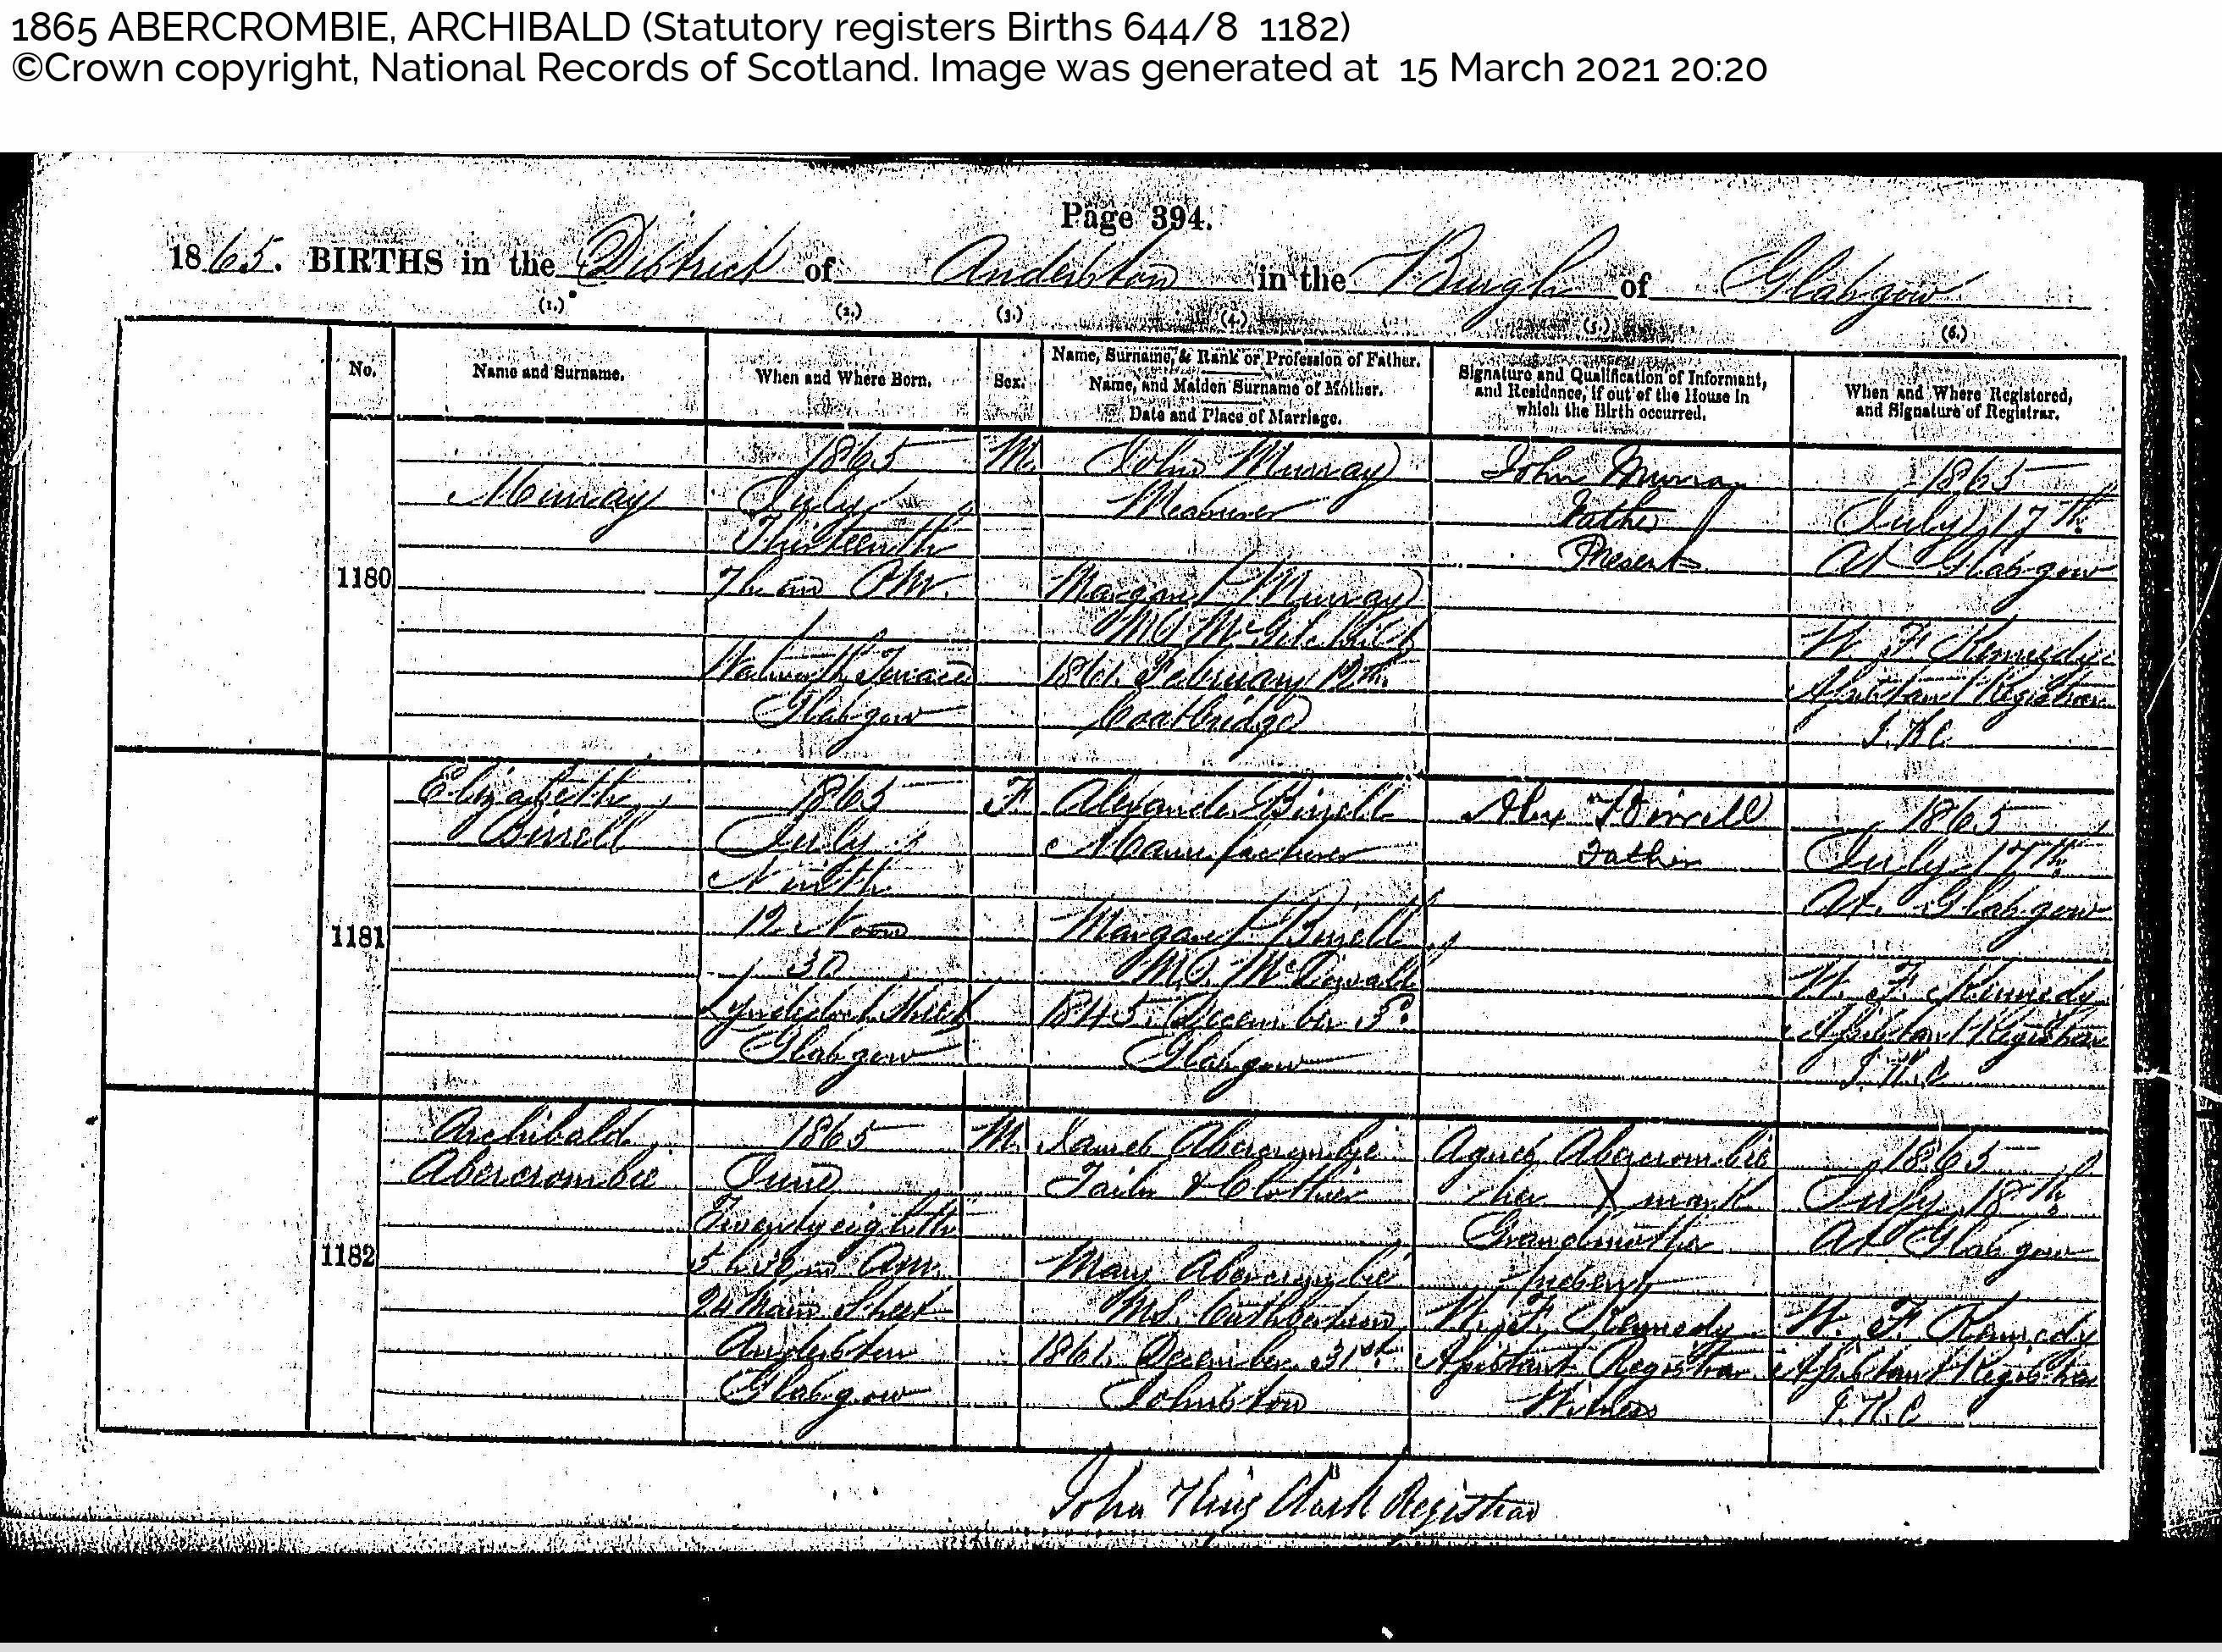 1865 ABERCROMBIE, ARCHIBALD (Statutory registers Births 644/8 1182)
©Crown copyright, National Records of Scotland. Image was generated at 15 March 2021 20:20
Page 394.
1865. BIRTHS in the District of Anderston in the Burgh of Glasgow
(1.) (2.) (3.) (4.) (5.) (6.)
No.
Name and Surname.
When and Where Born.
Sex.
Name, Surname, & Rank or Profession of Father.
Name, and Maiden Surname of Mother.
Date and Place of Marriage.
Signature and Qualification of Informant,
and Residence, if out of the House in
which the Birth occurred.
When and Where Registered,
and Signature of Registrar.
1180
Murray
1865
July
Thirteenth
P.M.
Terrace
Glasgow
M.
John Murray
Measurer
Margaret Murray
M.S.
1861. February 12th
Coatbridge
John Murray
Father
Present
1865
July 17th
At Glasgow
W. F. Kennedy
Assistant Registrar
J.K.C.
1181
Elizabeth
Birrell
1865
July
Ninth
12 Noon
30
Lynedoch Street
Glasgow
F
Alexander Birrell
Manufacturer
Margaret Birrell
M.S. McDowall
1845. December
Glasgow
Alex Birrell
Father
1865
July 17th
At Glasgow
W. F. Kennedy
Assistant Registrar
J.K.C
1182
Archibald
Abercrombie
1865
June
Twenty eighth
5 h. m. A.M.
24 Main Street
Anderston
Glasgow
M.
James Abercrombie
Tailor & Clothier
Mary Abercrombie
M.S. Cuthbertson
1861. December 31st
Johnston
Agnes Abercrombie
her X mark
Grandmother
Present
W. F. Kennedy
Assistant Registrar
Witness
1865
July 18th
At Glasgow
W. F. Kennedy
Assistant Registrar
J.K.C
John King Clark Registrar